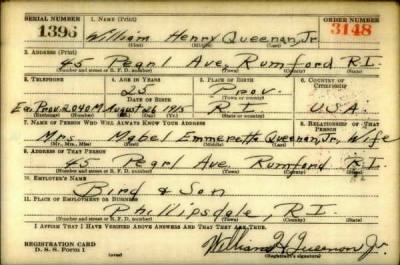 SERIAL NUMBER 1. NAME (Print) ORDER NUMBER
1395 William Henry Queenan, Jr. 3148
(First) (Middle) (Last)
3. ADDRESS (Print)
45 Pearl Ave, Rumford R.I.
(Number and street or R. F. D. number) (Town) (County) (State)
3. TELEPHONE 4. AGE IN YEARS 5. PLACE OF BIRTH 6. COUNTRY OF CITIZENSHIP
25 Prov. 
DATE OF BIRTH (Town or county)
Ea. Prov. 2040M August 26 1915 R.I. U.S.A.
(Exchange) (Number) (Mo.) (Day) (Yr.) (State or country)
7. NAME OF PERSON WHO WILL ALWAYS KNOW YOUR ADDRESS 8. RELATIONSHIP OF THAT PERSON
Mrs. Mabel Emmeretta Queenan, Jr. Wife
(Mr., Mrs., Miss) (First) (Middle) (Last)
9. ADDRESS OF THAT PERSON
45 Pearl Ave Rumford R.I.
(Number and street or R. F. D. number) (Town) (County) (State)
10. EMPLOYER'S NAME
Bird & Son
11. PLACE OF EMPLOYMENT OR BUSINESS
Phillipsdale, R.I.
(Number and street or R. F. D. number) (Town) (County) (State)
I AFFIRM THAT I HAVE VERIFIED ABOVE ANSWERS AND THAT THEY ARE TRUE.
REGISTRATION CARD William H Queenan Jr.
D. S. S. Form 1 (Registrant's signature)